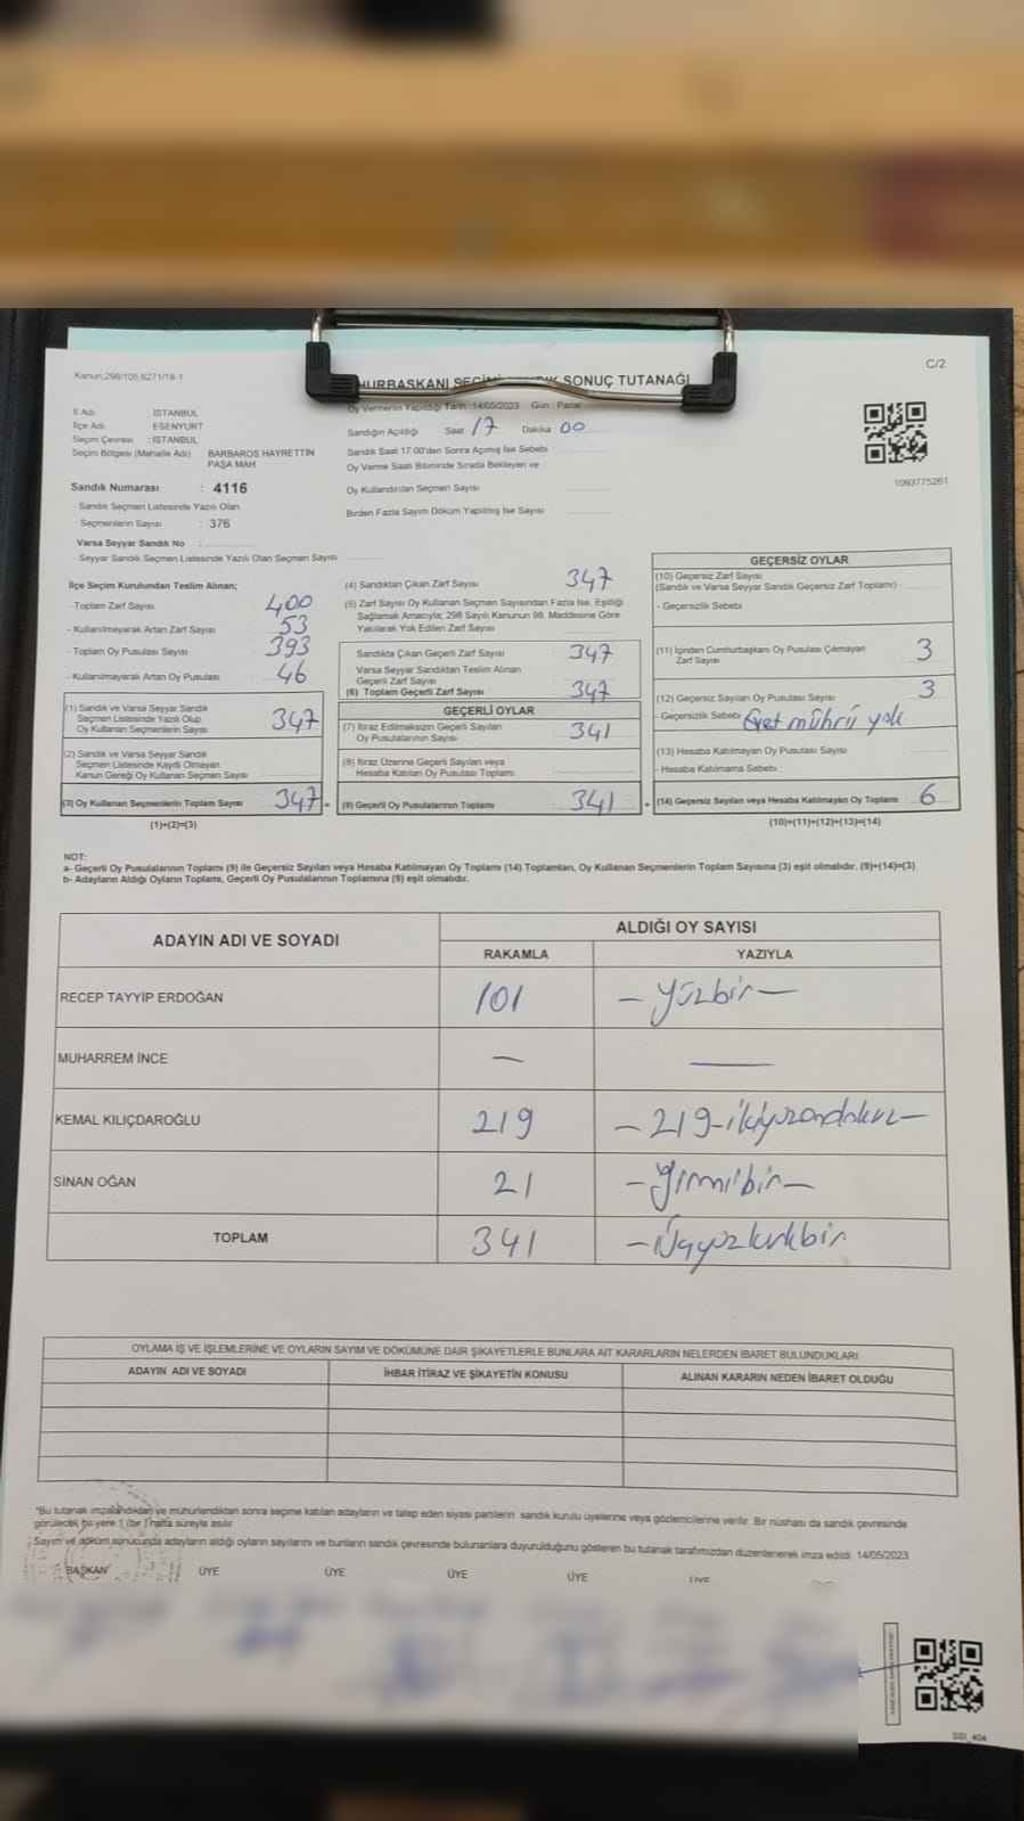 Kanun:298/105,6271/18-1
C/2
SONUÇ TUTANAĞI
İl Adı : İSTANBUL
İlçe Adı : ESENYURT
Seçim Çevresi : İSTANBUL
Seçim Bölgesi (Mahalle Adı) BARBAROS HAYRETTİN PAŞA MAH
Sandık Numarası : 4116
Sandık Seçmen Listesinde Yazılı Olan
Seçmenlerin Sayısı : 376
Varsa Seyyar Sandık No :
- Seyyar Sandık Seçmen Listesinde Yazılı Olan Seçmen Sayısı
Oy Vermenin Yapıldığı Tarih :14/05/2023 Gün : Pazar
Sandığın Açıldığı Saat 17 Dakika 00
Sandık Saat 17.00'den Sonra Açılmış İse Sebebi
Oy Verme Saati Bitiminde Sırada Bekleyen ve :
Oy Kullandırılan Seçmen Sayısı
Birden Fazla Sayım Döküm Yapılmış İse Sayısı
1093775261
İlçe Seçim Kurulundan Teslim Alınan;
- Toplam Zarf Sayısı 400
- Kullanılmayarak Artan Zarf Sayısı 53
- Toplam Oy Pusulası Sayısı 393
- Kullanılmayarak Artan Oy Pusulası 46
(1) Sandık ve Varsa Seyyar Sandık
Seçmen Listesinde Yazılı Olup
Oy Kullanan Seçmenlerin Sayısı 347
(2) Sandık ve Varsa Seyyar Sandık
Seçmen Listesinde Kayıtlı Olmayan
Kanun Gereği Oy Kullanan Seçmen Sayısı
(3) Oy Kullanan Seçmenlerin Toplam Sayısı 347 =
(1)+(2)=(3)
(4) Sandıktan Çıkan Zarf Sayısı 347
(5) Zarf Sayısı Oy Kullanan Seçmen Sayısından Fazla İse, Eşitliği
Sağlamak Amacıyla; 298 Sayılı Kanunun 98. Maddesine Göre
Yakılarak Yok Edilen Zarf Sayısı
Sandıkta Çıkan Geçerli Zarf Sayısı 347
Varsa Seyyar Sandıktan Teslim Alınan
Geçerli Zarf Sayısı
(6) Toplam Geçerli Zarf Sayısı 347
GEÇERLİ OYLAR
(7) İtiraz Edilmeksizin Geçerli Sayılan
Oy Pusulalarının Sayısı 341
(8) İtiraz Üzerine Geçerli Sayılan veya
Hesaba Katılan Oy Pusulası Toplamı
(9) Geçerli Oy Pusulalarının Toplamı 341 +
GEÇERSİZ OYLAR
(10) Geçersiz Zarf Sayısı
(Sandık ve Varsa Seyyar Sandık Geçersiz Zarf Toplamı)
- Geçersizlik Sebebi
(11) İçinden Cumhurbaşkanı Oy Pusulası Çıkmayan
Zarf Sayısı 3
(12) Geçersiz Sayılan Oy Pusulası Sayısı 3
- Geçersizlik Sebebi Evet mührü yok
(13) Hesaba Katılmayan Oy Pusulası Sayısı
- Hesaba Katılmama Sebebi :
(14) Geçersiz Sayılan veya Hesaba Katılmayan Oy Toplamı 6
(10)+(11)+(12)+(13)=(14)
NOT:
a- Geçerli Oy Pusulalarının Toplamı (9) ile Geçersiz Sayılan veya Hesaba Katılmayan Oy Toplamı (14) Toplamları, Oy Kullanan Seçmenlerin Toplam Sayısına (3) eşit olmalıdır. (9)+(14)=(3)
b- Adayların Aldığı Oyların Toplamı, Geçerli Oy Pusulalarının Toplamına (9) eşit olmalıdır.
ADAYIN ADI VE SOYADI
ALDIĞI OY SAYISI
RAKAMLA YAZIYLA
RECEP TAYYİP ERDOĞAN 101 - yüzbir -
MUHARREM İNCE — —
KEMAL KILIÇDAROĞLU 219 - 219-ikiyüzondokuz -
SİNAN OĞAN 21 - yirmibir -
TOPLAM 341 - Üçyüzkırkbir
OYLAMA İŞ VE İŞLEMLERİNE VE OYLARIN SAYIM VE DÖKÜMÜNE DAİR ŞİKAYETLERLE BUNLARA AİT KARARLARIN NELERDEN İBARET BULUNDUKLARI
ADAYIN ADI VE SOYADI İHBAR İTİRAZ VE ŞİKAYETİN KONUSU ALINAN KARARIN NEDEN İBARET OLDUĞU
*Bu tutanak imzalandıktan ve mühürlendikten sonra seçime katılan adayların ve talep eden siyasi partilerin sandık kurulu üyelerine veya gözlemcilerine verilir. Bir nüshası da sandık çevresinde
görülecek bir yere 1 (bir ) hafta süreyle asılır.
Sayım ve döküm sonucunda adayların aldığı oyların sayılarını ve bunların sandık çevresinde bulunanlara duyurulduğunu gösteren bu tutanak tarafımızdan düzenlenerek imza edildi. 14/05/2023
BAŞKAN ÜYE ÜYE ÜYE ÜYE ÜYE